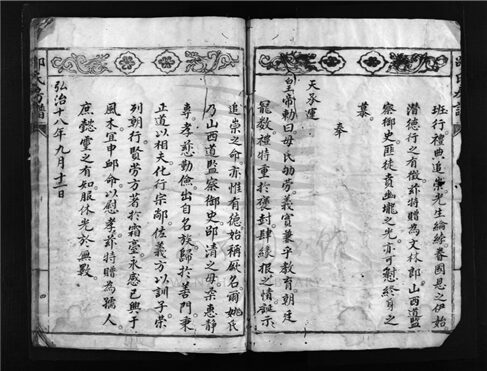 班行禮典追崇先生綸綍春國恩之伊始
潛德行之有徵玆特贈為文林郎山西道監
察御史匪徒賁壠之光亦可慰終身之
慕
奉
天承運
皇帝勅曰母氏劬勞義實兼乎教育朝廷
寵數禮特重於褒封肆緣根之情誕示
追崇之命亦惟有德始稱厥名爾姚氏
乃山西道監察御史邵清之母柔惠靜
專孝慈勤儉出自名族歸於善門秉
正道以相夫化行宗鄰佐義方以訓子榮
列朝行賢勞方著於霜臺永感已興于
風木申命以慰孝玆特贈為孺人
庶懿靈之有知服休光於無斁
弘治十八年九月十二日